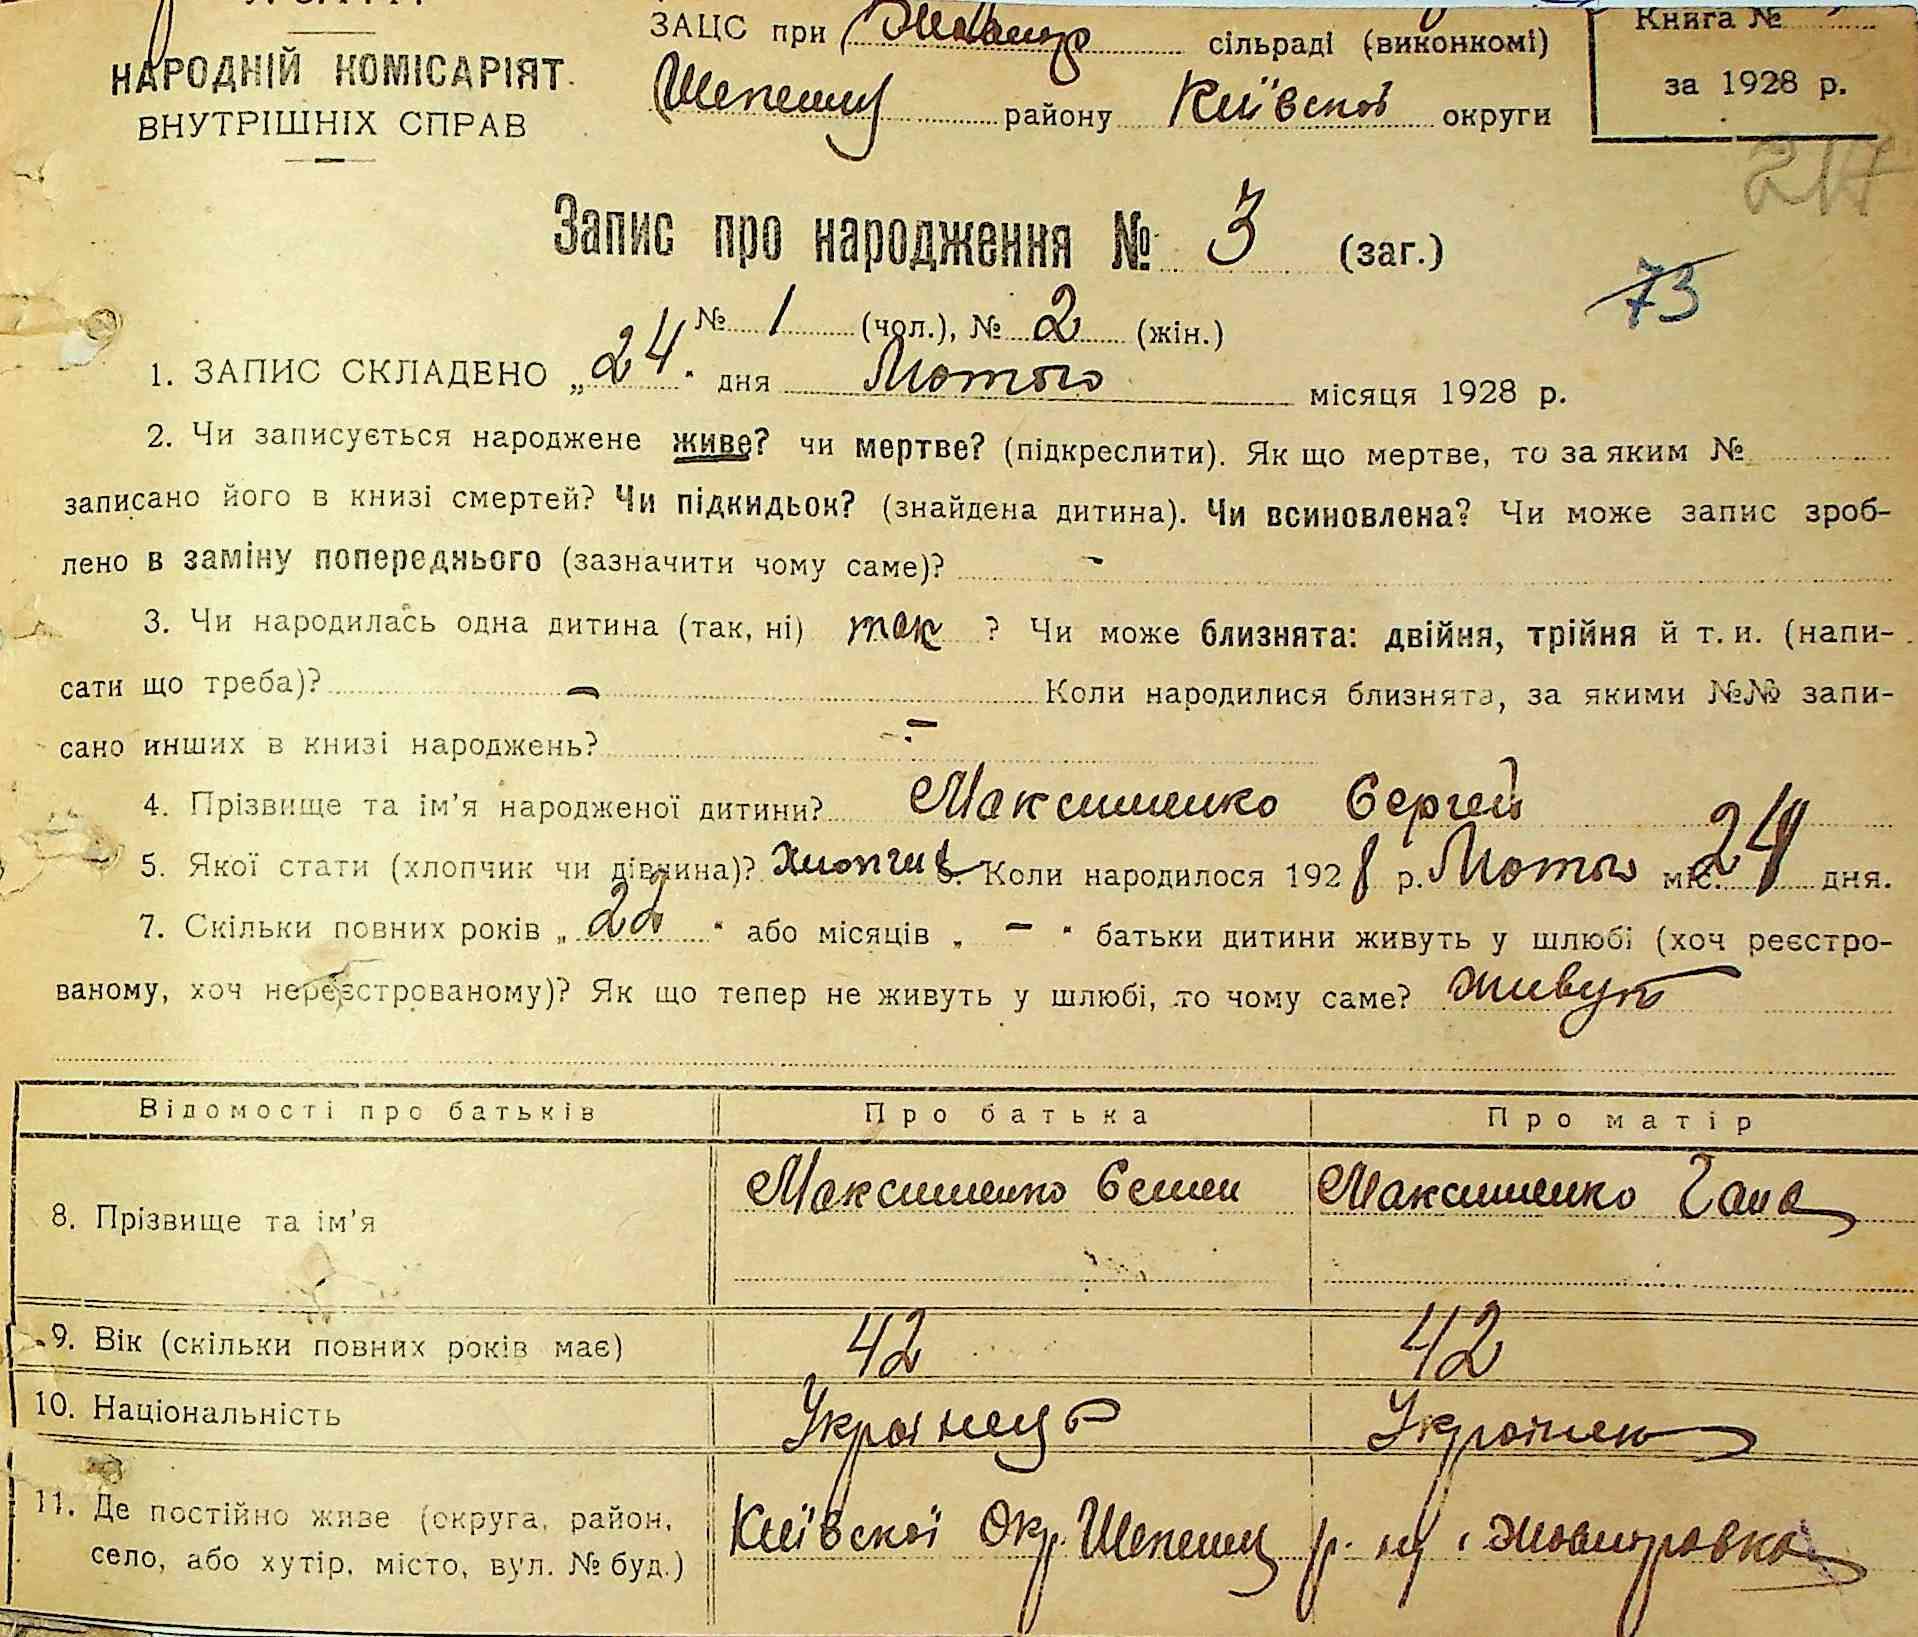 ЗАЦС при сільраді (виконкомі)
Книга №
НАРОДНІЙ КОМІСАРІЯТ
ВНУТРІШНІХ СПРАВ
району Київскої округи
за 1928 р.
217
Запис про народження № 3 (заг.)
73
№ 1 (чол.), № 2 (жін.)
1. ЗАПИС СКЛАДЕНО „24" дня Лютого місяця 1928 р.
2. Чи записується народжене живе? чи мертве? (підкреслити). Як що мертве, то за яким №
записано його в книзі смертей? Чи підкидьок? (знайдена дитина). Чи всиновлена? Чи може запис зроб-
лено в заміну попереднього (зазначити чому саме)? -
3. Чи народилась одна дитина (так, ні) так ? Чи може близнята: двійня, трійня й т. и. (напи-
сати що треба)? - Коли народилися близнята, за якими №№ запи-
сано инших в книзі народжень? -
4. Прізвище та ім'я народженої дитини? Максименко Сергей
5. Якої стати (хлопчик чи дівчина)? Хлопчик 6. Коли народилося 1928 р. Лютого міс. 24 дня.
7. Скільки повних років „22" або місяців „ - " батьки дитини живуть у шлюбі (хоч реєстро-
ваному, хоч нереєстрованому)? Як що тепер не живуть у шлюбі, то чому саме? живут
Відомості про батьків Про батька Про матір
8. Прізвище та ім'я Максименко Семен Максименко Гана
9. Вік (скільки повних років має) 42 42
10. Національність Українець Українка
11. Де постійно живе (округа, район, село, або хутір, місто, вул. № буд.) Київскої Окр.